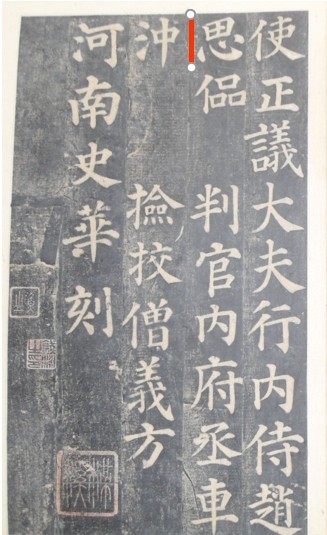 使正議大夫行内侍趙
思偘　判官内府丞車
沖　　撿挍僧義方
河南史華刻